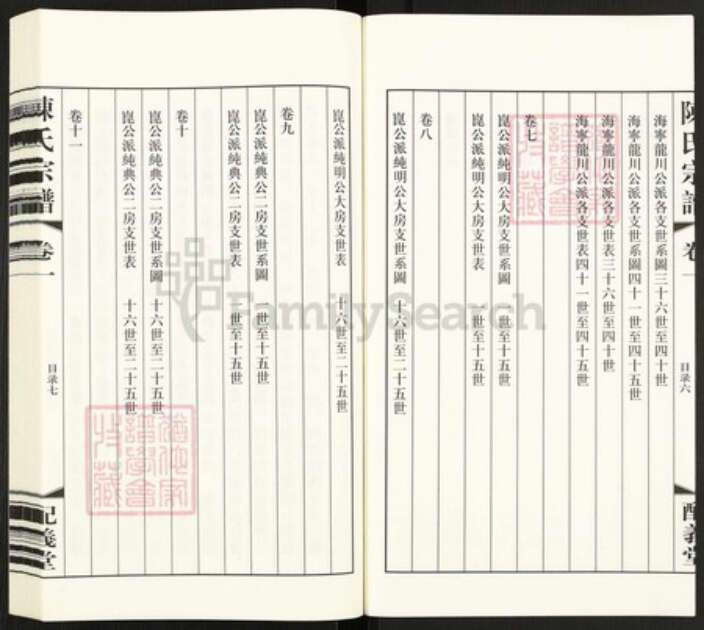 陳氏宗譜
卷一
目录六
配義堂
海寧龍川公派各支世系圖三十六世至四十世
海寧龍川公派各支世系圖四十一世至四十五世
海寧龍川公派各支世表三十六世至四十世
海寧龍川公派各支世表四十一世至四十五世
卷七
崑公派純明公大房支世系圖 一世至十五世
崑公派純明公大房支世表 一世至十五世
卷八
崑公派純明公大房支世系圖 十六世至二十五世
崑公派純明公大房支世表 十六世至二十五世
卷九
崑公派純典公二房支世系圖 一世至十五世
崑公派純典公二房支世表 一世至十五世
卷十
崑公派純典公二房支世系圖 十六世至二十五世
崑公派純典公二房支世表 十六世至二十五世
卷十一
陳氏宗譜
卷一
目录七
配義堂
FamilySearch